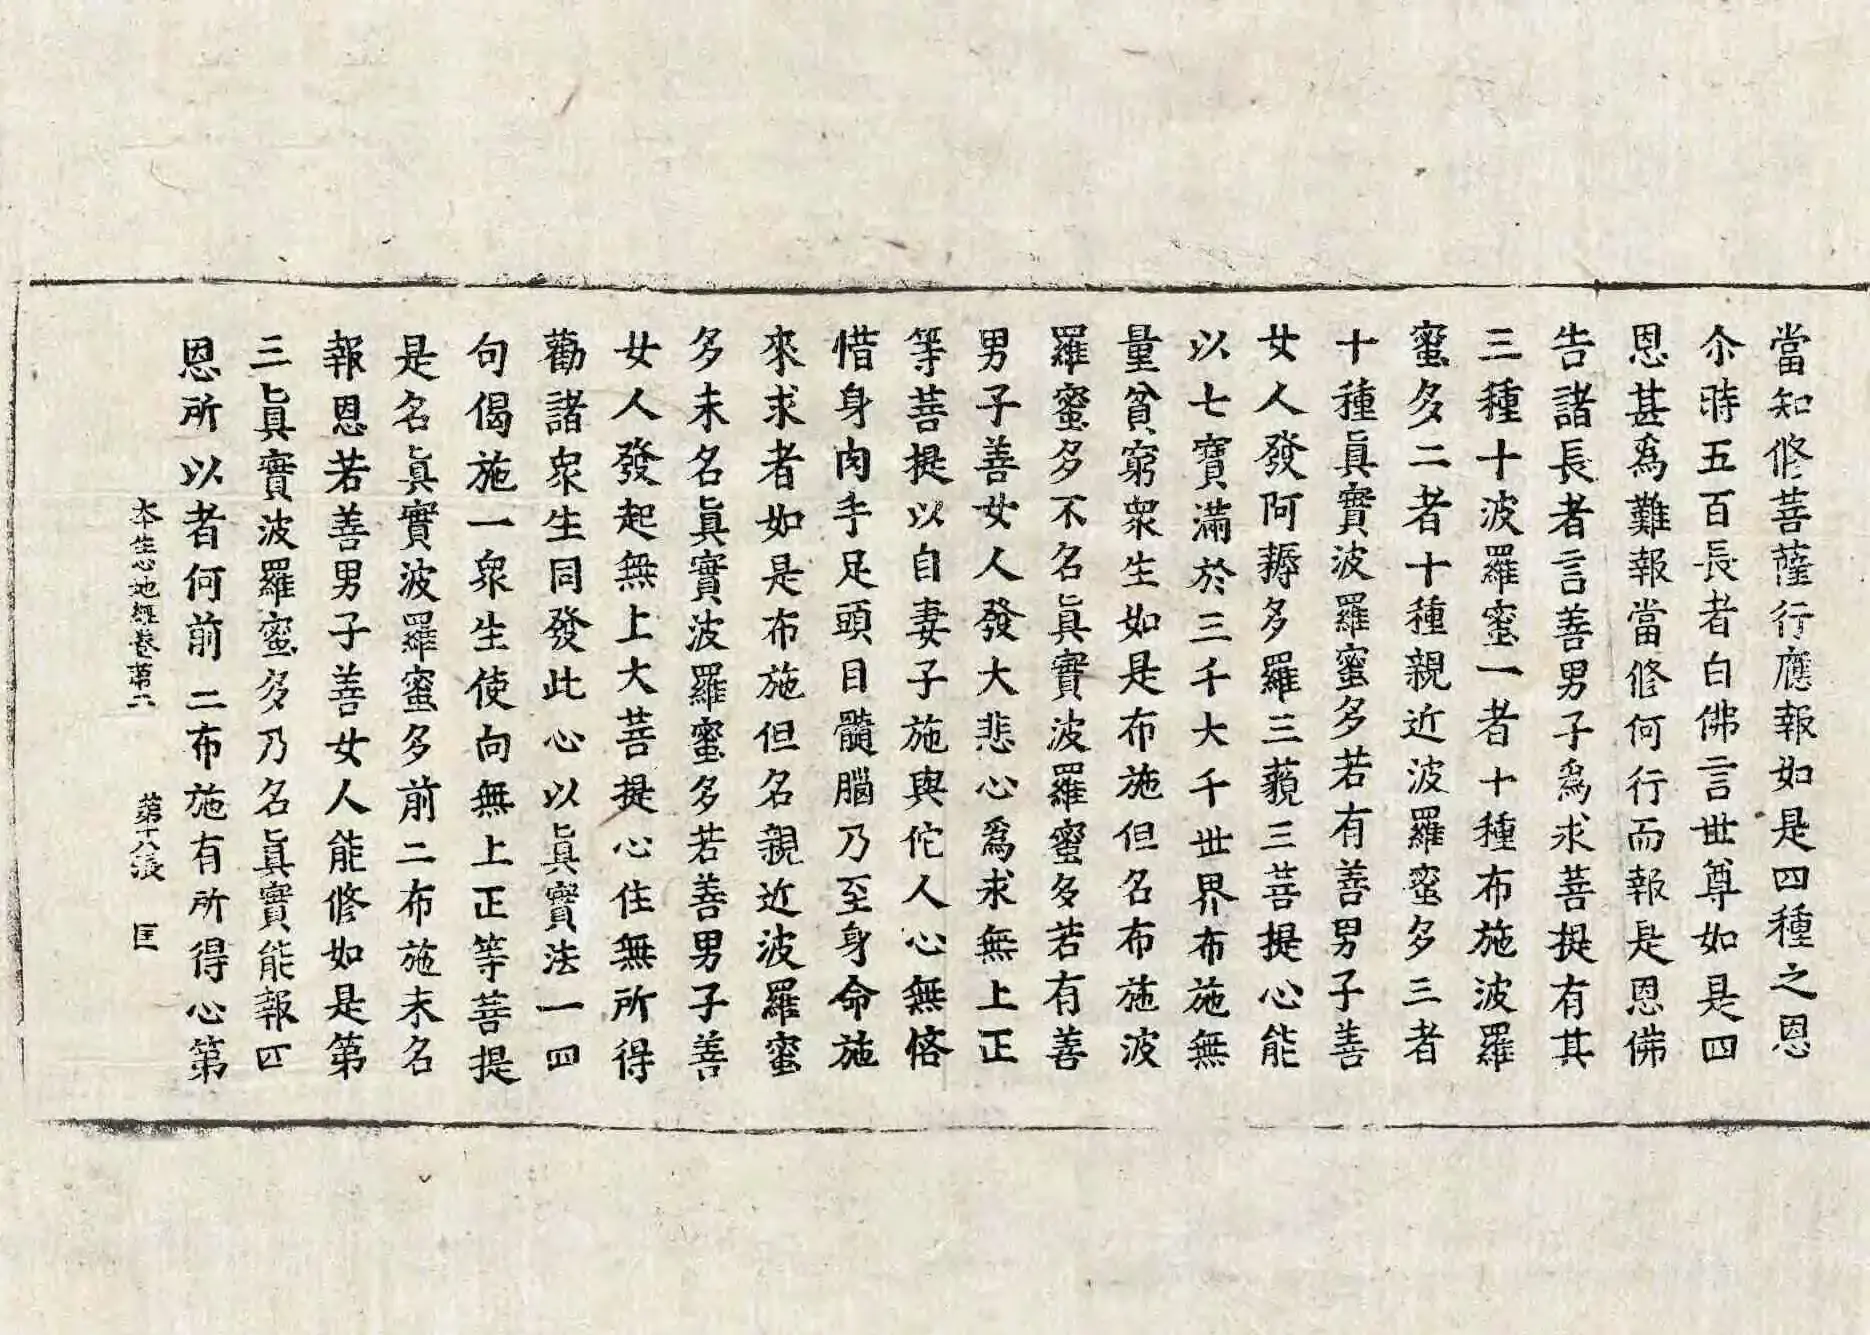 當知修菩薩行應報如是四種之恩
尒時五百長者白佛言世尊如是四
恩甚爲難報當修何行而報是恩佛
告諸長者言善男子爲求菩提有其
三種十波羅蜜一者十種布施波羅
蜜多二者十種親近波羅蜜多三者
十種眞實波羅蜜多若有善男子善
女人發阿耨多羅三藐三菩提心能
以七寶滿於三千大千世界布施無
量貧窮衆生如是布施但名布施波
羅蜜多不名眞實波羅蜜多若有善
男子善女人發大悲心爲求無上正
等菩提以自妻子施與佗人心無悋
惜身肉手足頭目髓腦乃至身命施
來求者如是布施但名親近波羅蜜
多未名眞實波羅蜜多若善男子善
女人發起無上大菩提心住無所得
勸諸衆生同發此心以眞實法一四
句偈施一衆生使向無上正等菩提
是名眞實波羅蜜多前二布施未名
報恩若善男子善女人能修如是第
三眞實波羅蜜多乃名眞實能報四
恩所以者何前二布施有所得心第
本生心地經卷第二 第十八張 匡